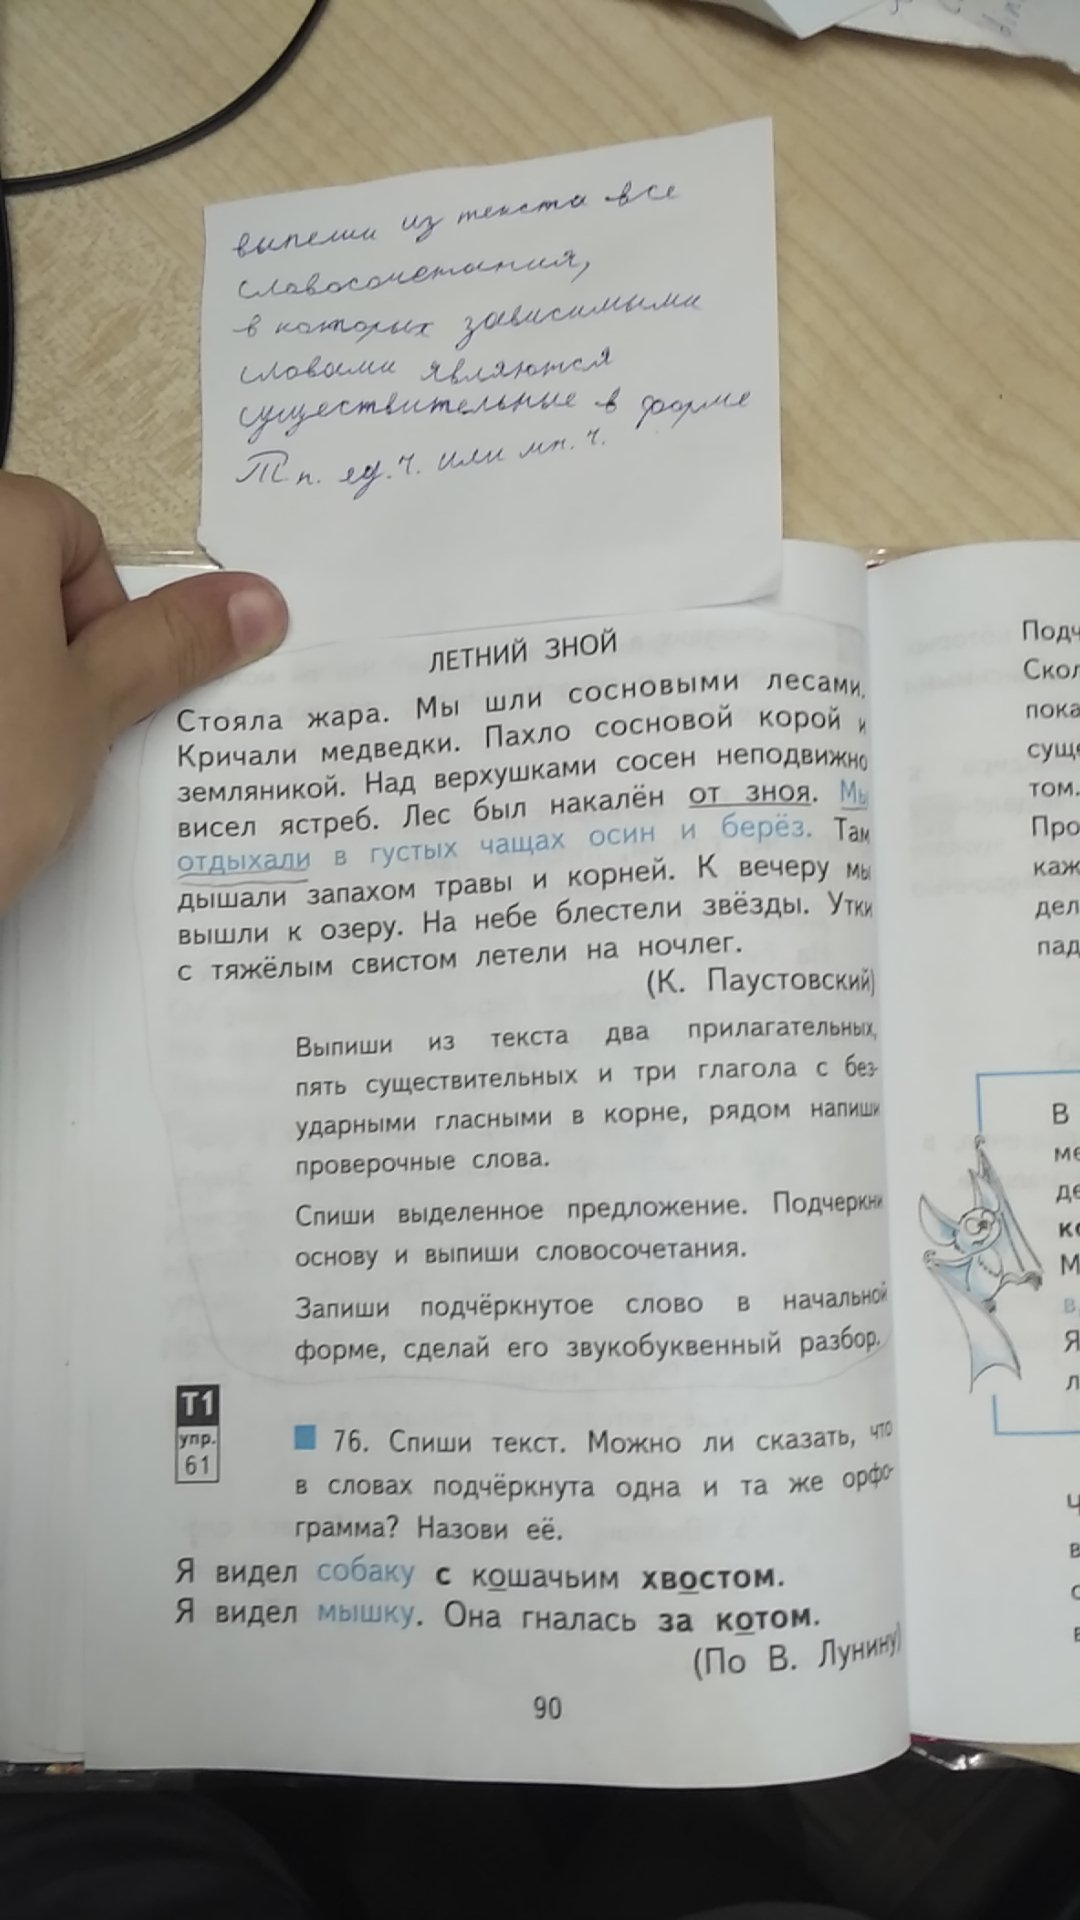 выпеши из текста все
словосочетания,
в которых зависимыми
словами являются
существительные в форме
Т п. ед. ч. или мн. ч.
ЛЕТНИЙ ЗНОЙ
Стояла жара. Мы шли сосновыми лесами.
Кричали медведки. Пахло сосновой корой и
земляникой. Над верхушками сосен неподвижно
висел ястреб. Лес был накалён от зноя. Мы
отдыхали в густых чащах осин и берёз. Там
дышали запахом травы и корней. К вечеру мы
вышли к озеру. На небе блестели звёзды. Утки
с тяжёлым свистом летели на ночлег.
(К. Паустовский)
Выпиши из текста два прилагательных,
пять существительных и три глагола с без-
ударными гласными в корне, рядом напиши
проверочные слова.
Спиши выделенное предложение. Подчеркни
основу и выпиши словосочетания.
Запиши подчёркнутое слово в начальной
форме, сделай его звукобуквенный разбор.
Т1
упр.
61
76. Спиши текст. Можно ли сказать, что
в словах подчёркнута одна и та же орфо-
грамма? Назови её.
Я видел собаку с кошачьим хвостом.
Я видел мышку. Она гналась за котом.
(По В. Лунину)
90
Подч
Скол
пока
суще
том.
Про
каж
дел
пад
В
ме
де
ко
М
в
Я
л